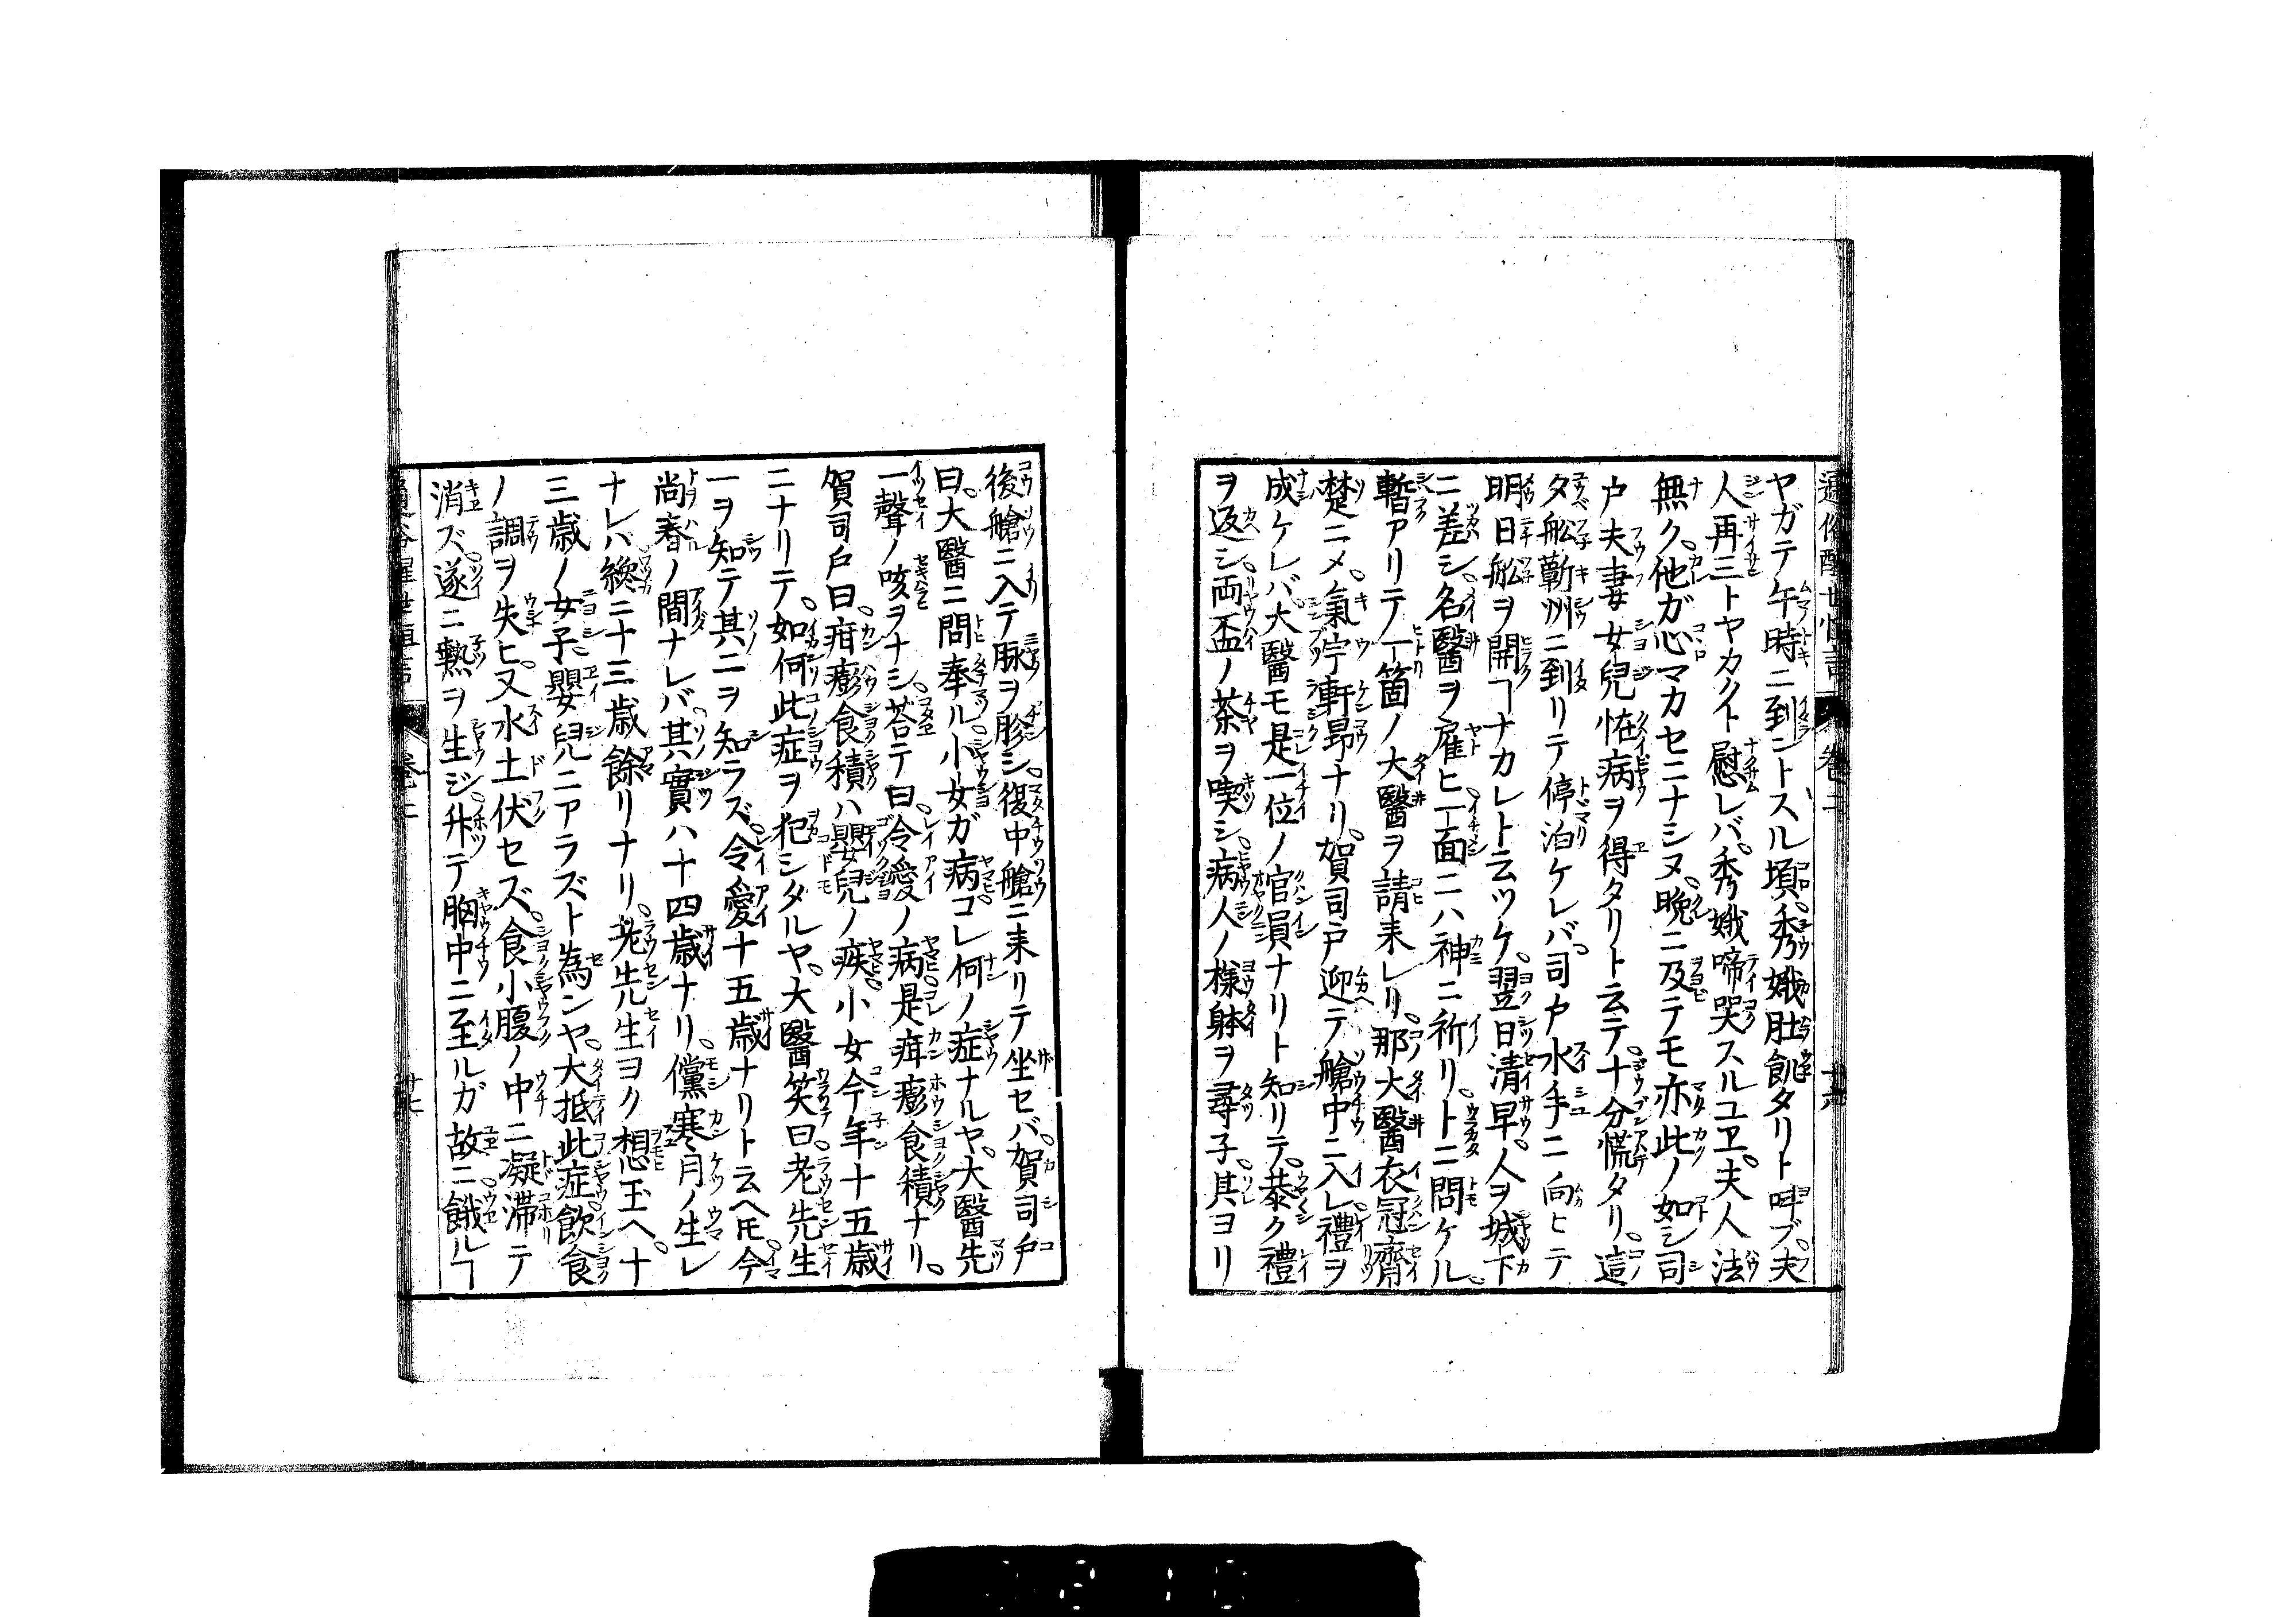 ヤガテ午時ニ到ントスル頃。秀娥肚飢タリト呼ブ。夫
人再三トヤカクト慰レバ。秀娥啼哭スルユヱ。夫人法
無ク。他ガ心マカセニナシヌ。晩ニ及テモ亦此ノ如シ司
戸夫妻女兒怪病ヲ得タリト云テ。十分慌タリ。這
夕舩蘄州ニ到リテ停泊ケレバ。司戸水手ニ向ヒテ
明日舩ヲ開ヿナカレト云ツケ。翌日清早。人ヲ城下
ニ差シ。名醫ヲ雇ヒ。一面ニハ神ニ祈リ。卜ニ問ケル。
暫アリテ一箇ノ大醫ヲ請来レリ。那大醫衣冠齊
楚ニメ。氣宇軒昂ナリ。賀司戸迎テ艙中ニ入レ。禮ヲ
成ケレバ。大醫モ是一位ノ官員ナリト知リテ。恭ク禮
ヲ返シ。両盃ノ茶ヲ喫シ。病人ノ様躰ヲ尋子。其ヨリ
通俗醒世恒言 巻二 十六
後艙ニ入テ脉ヲ胗シ。復中艙ニ来リテ坐セバ。賀司戸
曰。大醫ニ問奉ル。小女ガ病コレ何ノ症ナルヤ。大醫先
一聲ノ咳ヲナシ。荅テ曰。令愛ノ病。是疳膨食積ナリ。
賀司戸曰。疳膨食積ハ嬰兒ノ疾。小女今年十五歳
ニナリテ。如何此症ヲ犯シタルヤ。大醫笑曰。老先生
一ヲ知テ其二ヲ知ラズ。令愛十五歳ナリト云ヘ𪜈。今
尚春ノ間ナレバ。其實ハ十四歳ナリ。儻寒月ノ生レ
ナレハ纔ニ十三歳餘リナリ。老先生ヨク想玉ヘ。十
三歳ノ女子。嬰兒ニアラズト為ンヤ。大抵此症飲食
ノ調ヲ失ヒ。又水土伏セズ。食小腹ノ中ニ凝滞テ
消ズ。遂ニ熱ヲ生ジ。升テ胸中ニ至ルガ故ニ。餓ルヿ
通俗醒世恒言 巻二 十七